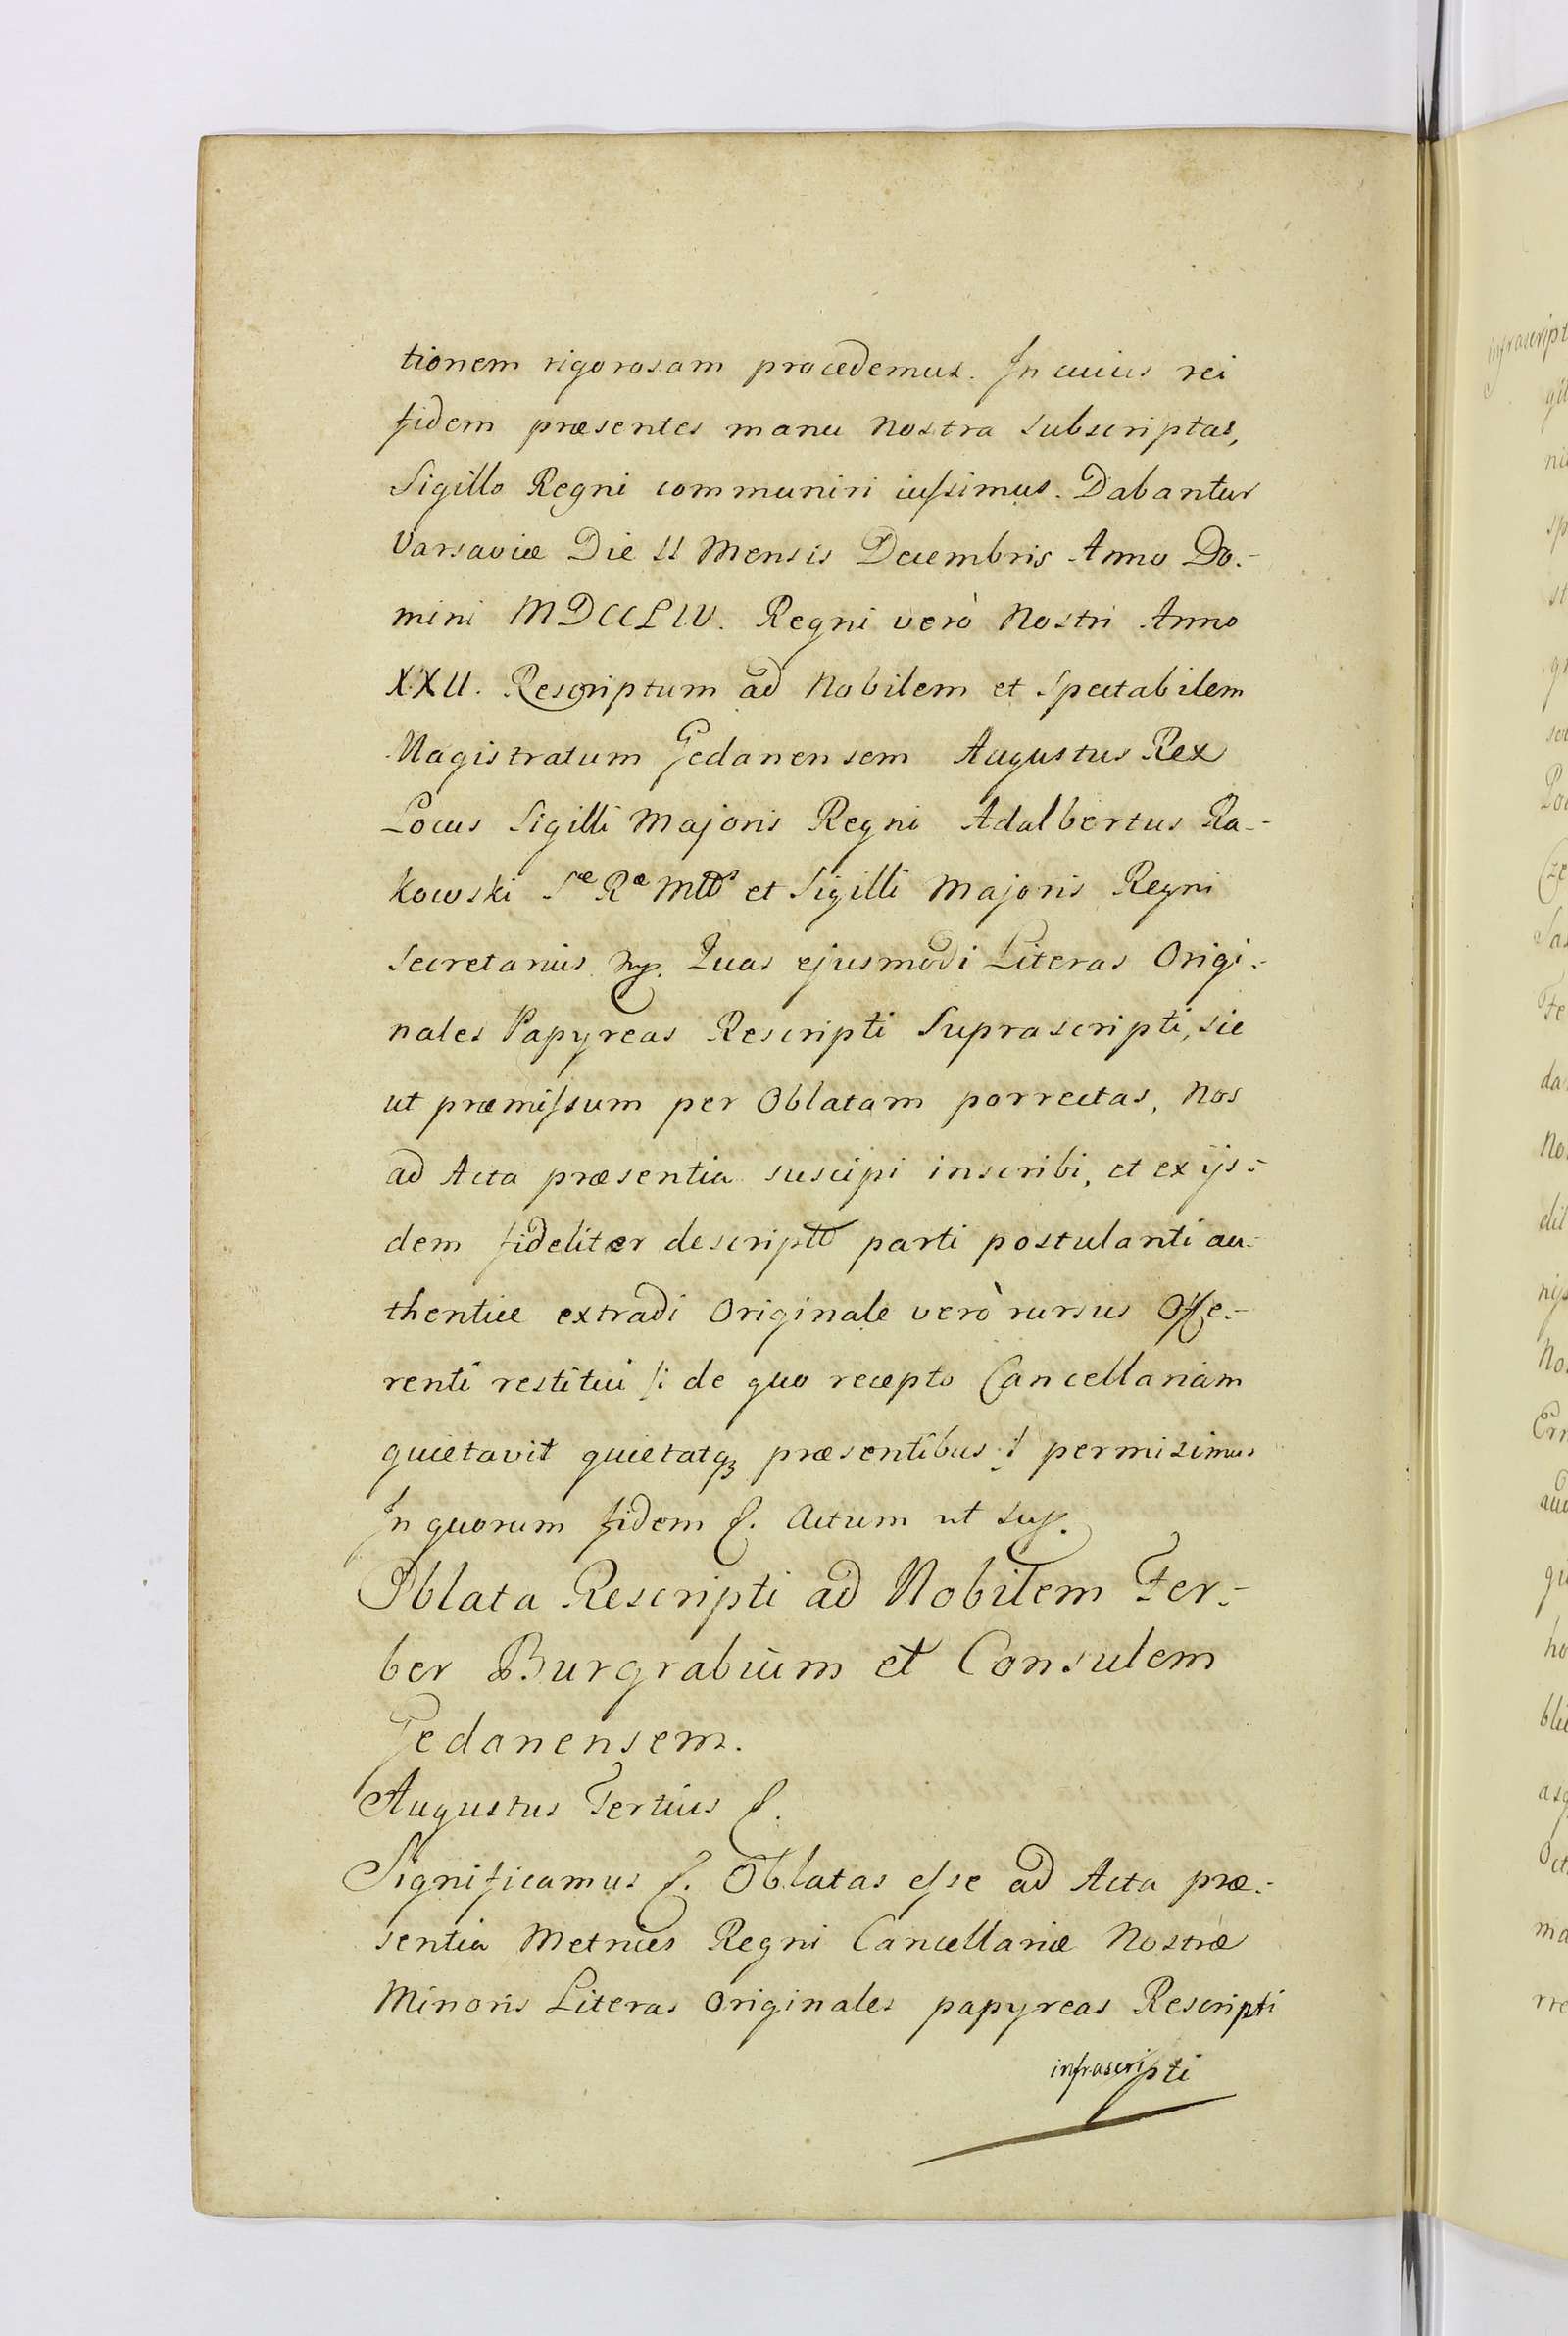 tionem rigorosam procedemus. In cuius rei
fidem præsentes manu Nostra subscriptas,
Sigillo Regni communiri iussimus. Dabantur
Varsaviæ Die 11 Mensis Decembris Anno Do-
mini MDCCLIV. Regni verò Nostri Anno
XXII. Rescriptum ad Nobilem et Spectabilem
Magistratum Gedanensem Augustus Rex
Locus Sigilli Majoris Regni Adalbertus Ra-
kowski Sæ Ræ Mttis et Sigilli Majoris Regni
Secretarius mp. Quas ejusmodi Literas Origi-
nales Papyreas Rescripti Suprascripti, sic
ut præmissum per Oblatam porrectas, Nos
ad Acta præsentia suscipi inscribi, et ex ijs-
dem fideliter descriptt parti postulanti au-
thentice extradi Originale verò rursus Offe-
renti restitui /: de quo recepto Cancellariam
quietavit quietatq3 præsentibus :/ permisimus
In quorum fidem &. Actum ut sup.
Oblata Rescripti ad Nobilem Fer-
ber Burgrabium et Consulem
Gedanensem.
Augustus Tertius &.
Significamus &. Oblatas esse ad Acta præ-
sentia Metrices Regni Cancellariæ Nostræ
Minoris Literas Originales papyreas Rescripti
infrascripti